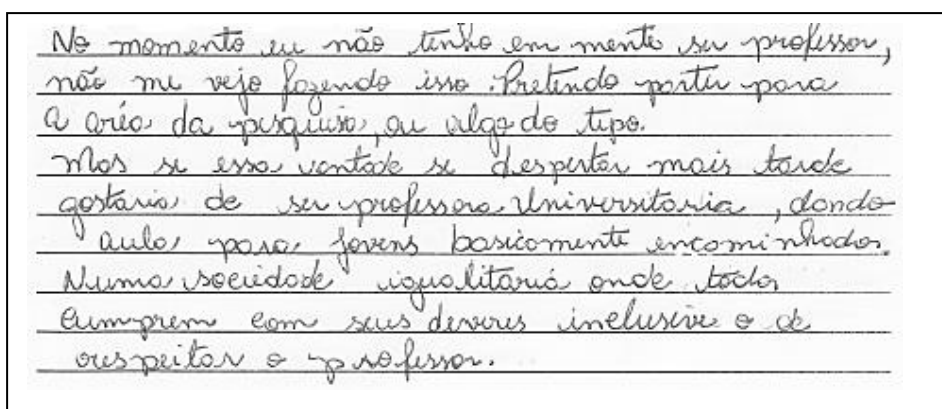 No momento eu não tenho em mente ser professor,
não me vejo fazendo isso. Pretendo partir para
a aréa da pesquisa, ou algo do tipo.
Mas se essa vontade se despertar mais tarde
gostaria de ser professora Universitaria, dando
aula para jovens basicamente encaminhados.
Numa sociedade igualitária onde todos
cumprem com seus deveres inclusive o de
respeitar o professor.